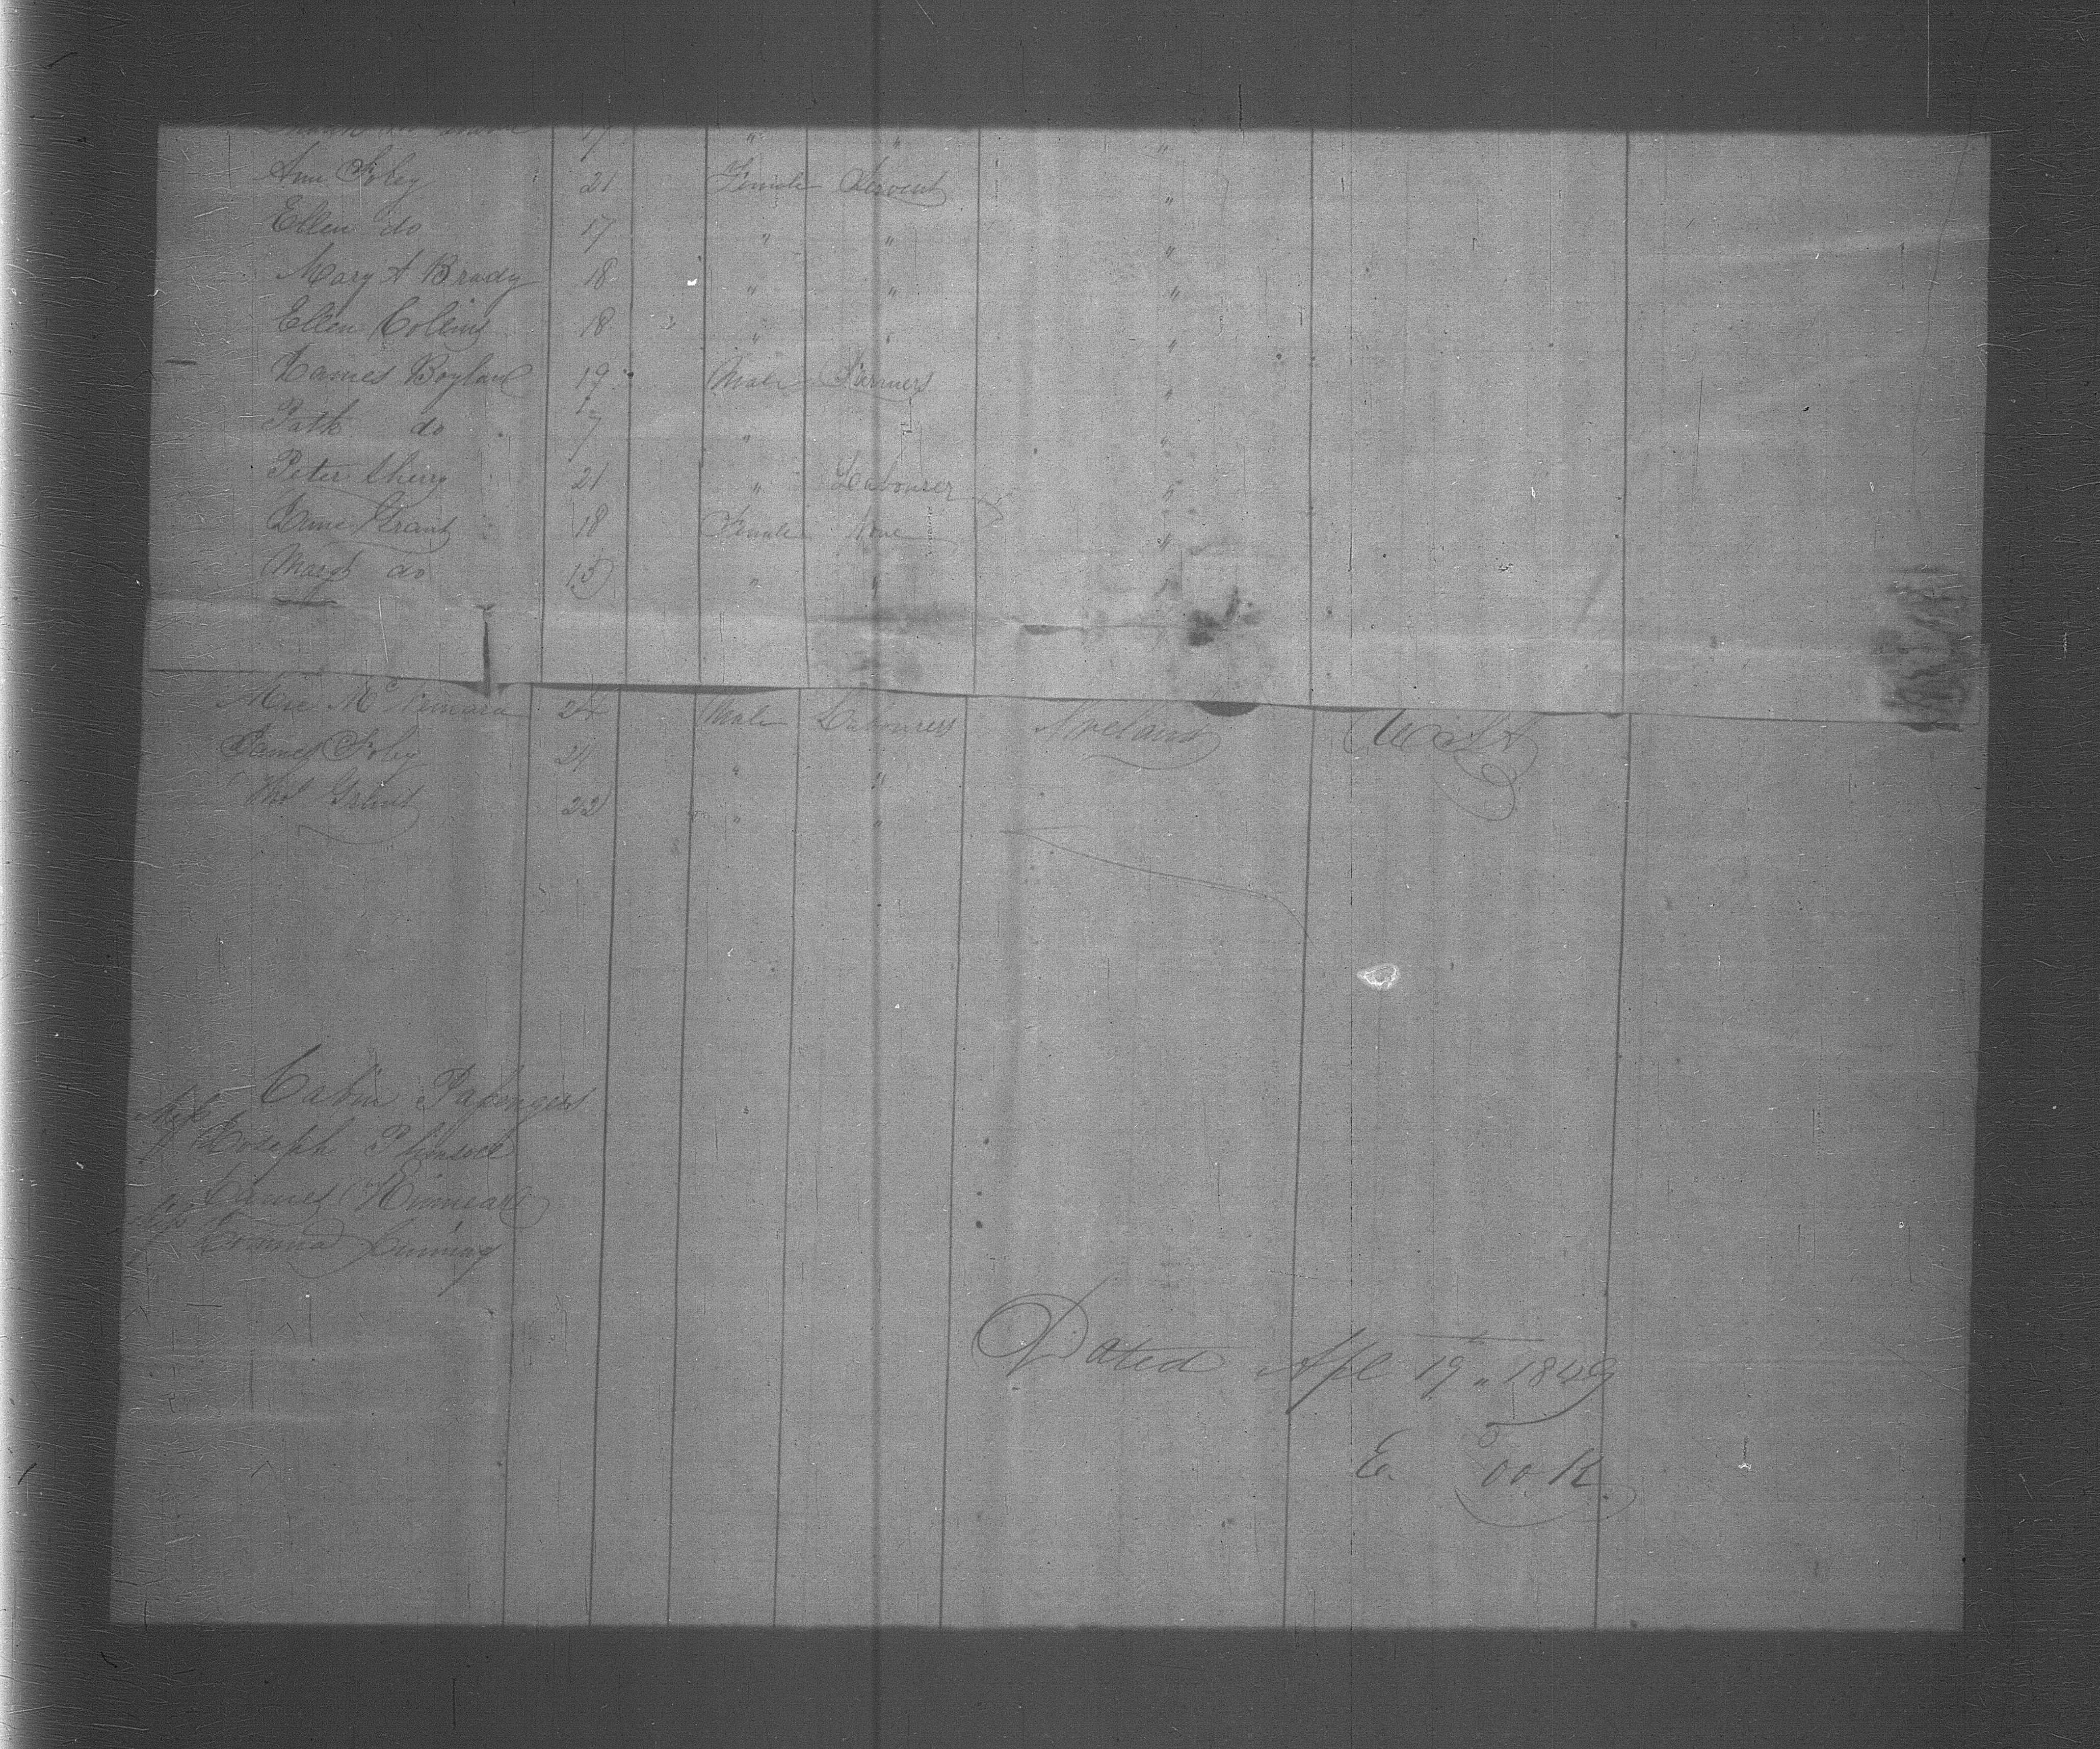 17 " " "
Ann Foley 21 Female Servent "
Ellen do 17 " " "
Mary A Brady 18 " " "
Ellen Collins 18 " " "
James Boylan 19 Male Farmers "
Patk do 7 " "
Peter Sherry 21 " Labourer "
Anne Grant 18 Female None "
Margt do 15 " " "
Mic McNamara 24 Male Labourers Ireland U S A
James Foley 21 " "
Thos Grant 22 " "
Cabin Passengers
Joseph
James Kinnear
Dated Apl 19th " 1849
E. Cook